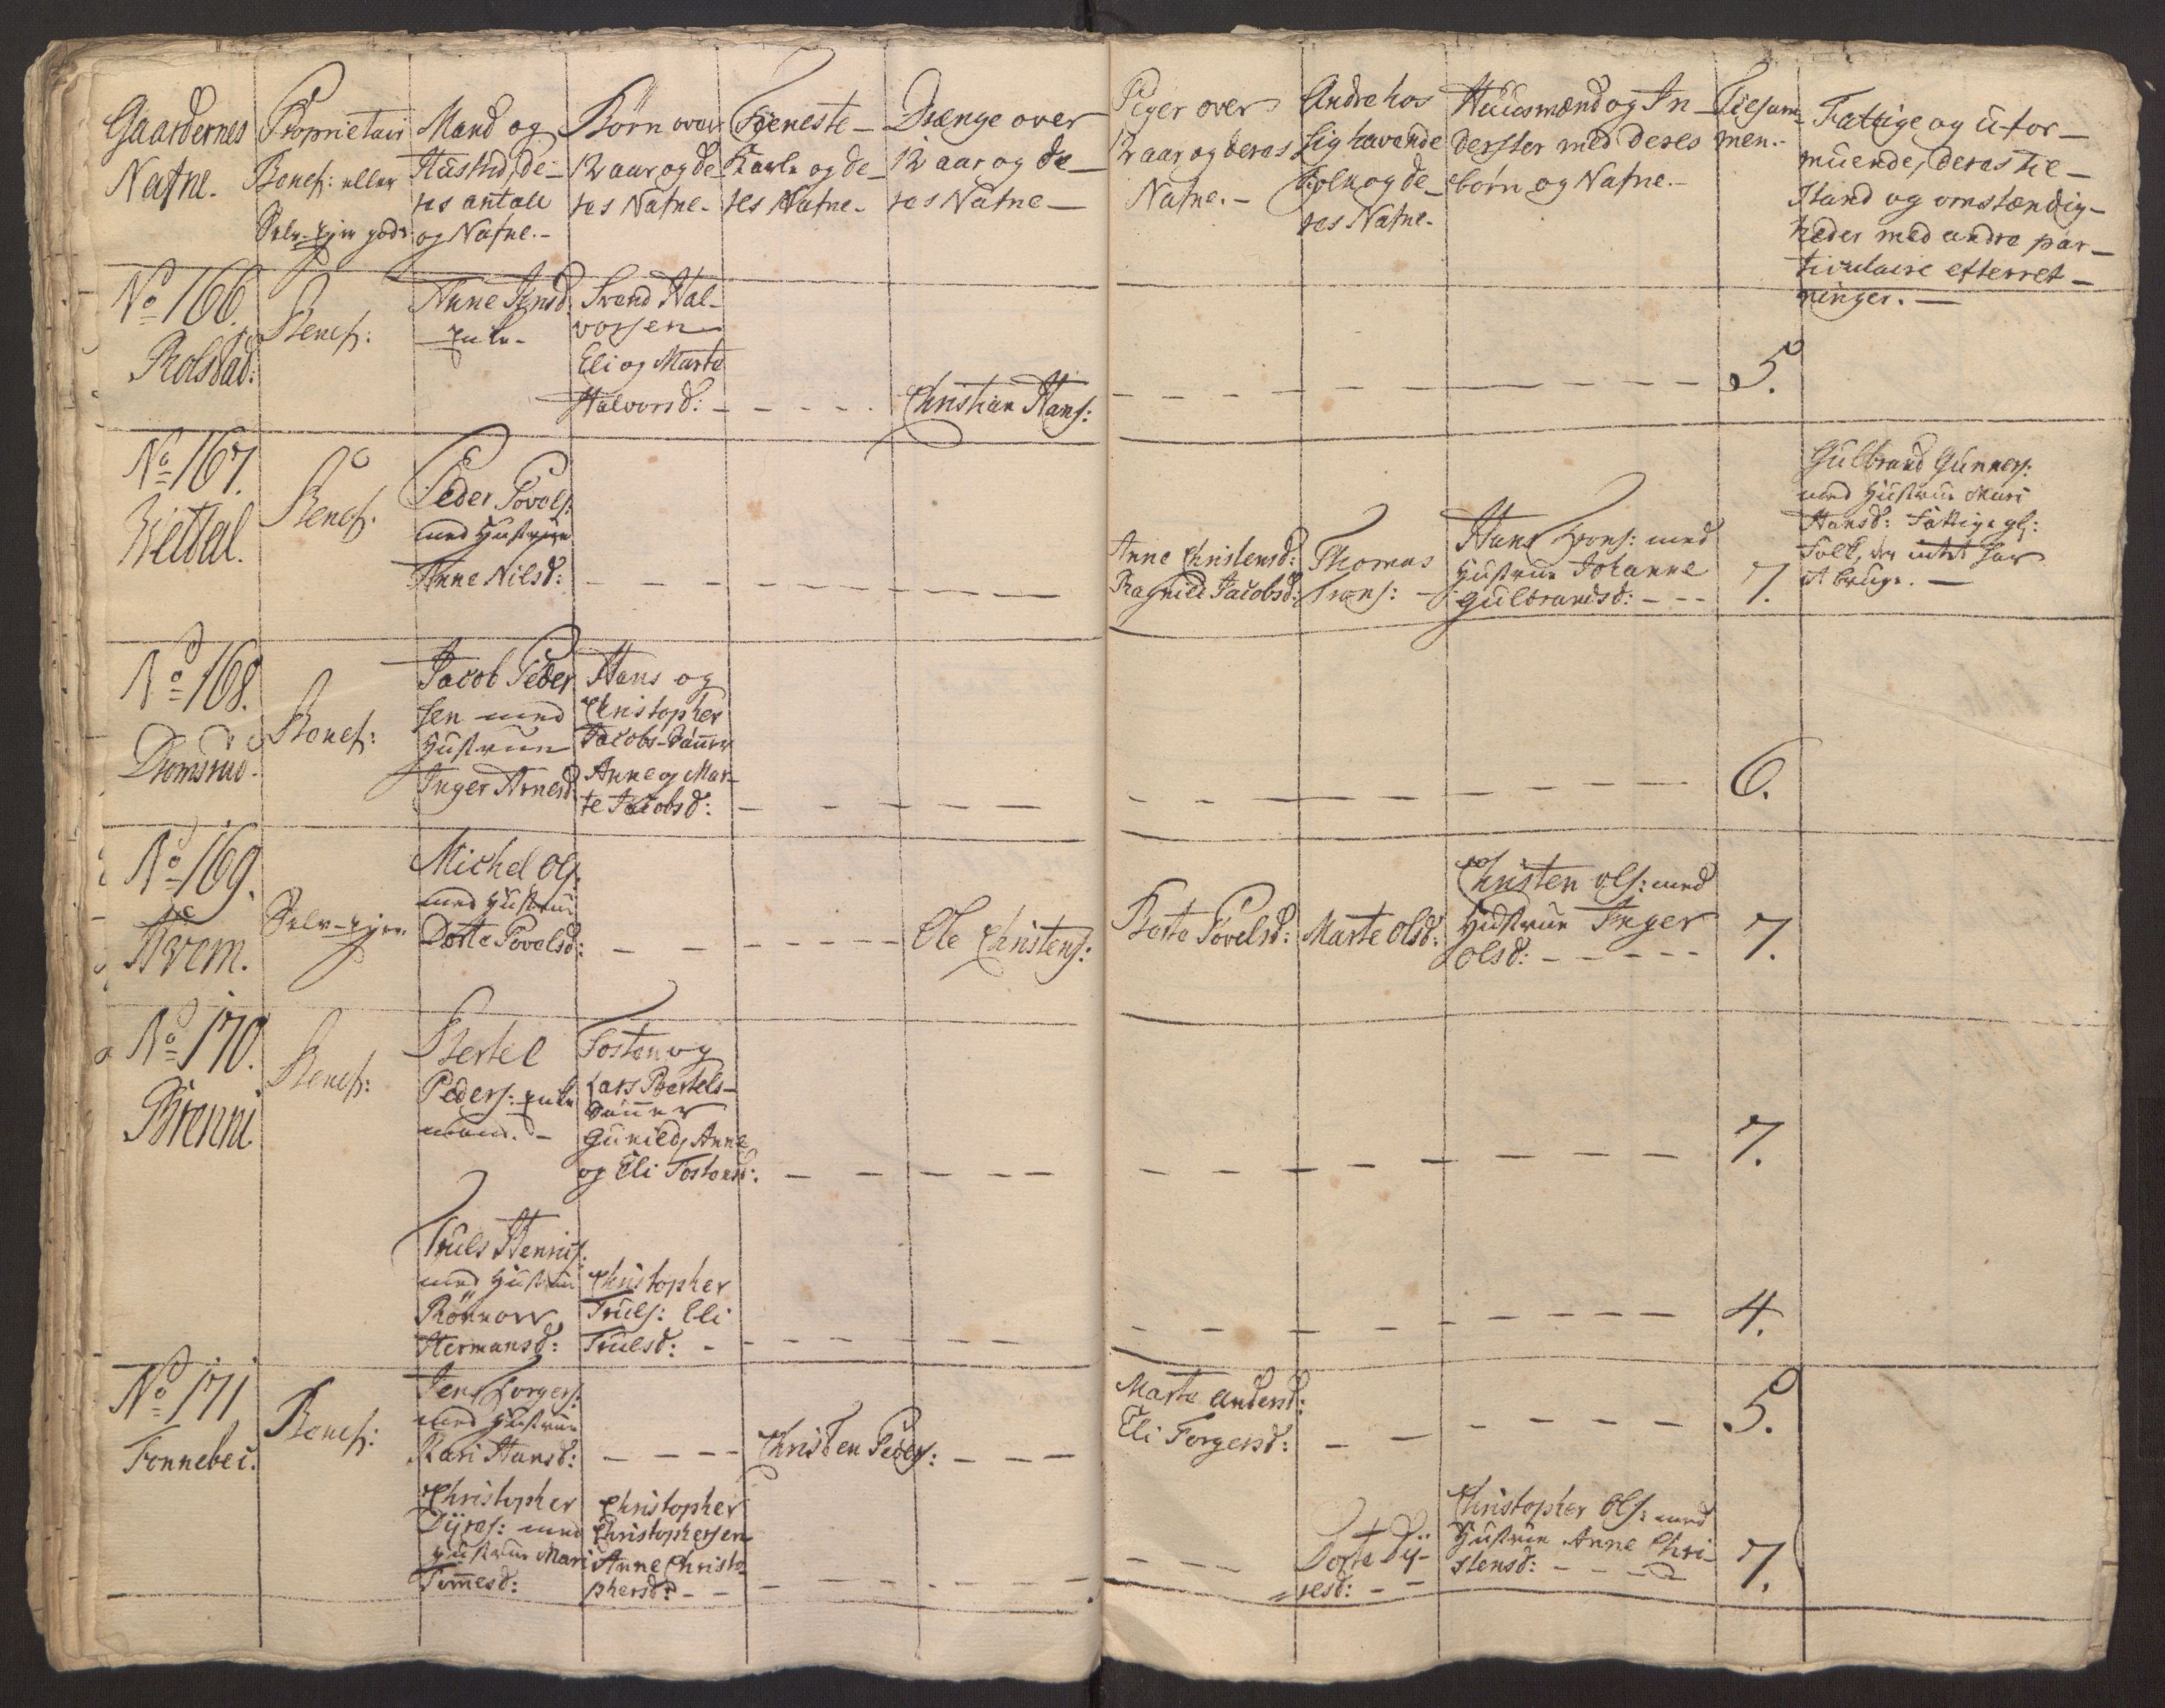 Gaardernes
Nafne.
Proprietair
Benef: eller
Selv-Ejer gods
Mand og
Hustrue, de-
res antall
og Nafne.-
Børn over
12 aar og de-
res Nafne.
Tieneste-
Karle og de-
res Nafne.
Drænge over
12 aar og de-
res Nafne-
Piger over
12 aar og deres
Nafne.-
Andre hos
sig havende
Folk og de-
res Nafne.
Huusmænd og In-
derster med deres
børn og Nafne.-
Tilsam-
men.-
Fattige og ufor-
muende, deres til-
stand og omstændig-
heder med andre par-
ticulaire efterret-
ninger.-
No 166.
Rolstad:
Benef:
Anne
Enke-
Svend Hal-
vorsen
Eli og Marte
Halvorsd: -
Christian Hans:
5.
No 167.
Benef:
Peder Povels:
med Hustrue
Anne Nilsd:
Anne Christensd:
Ragnild Jacobsd:
Thomas
Hans
med
Hustrue Johanne
Gulbrandsd: - - -
7.
Gulbrand Gunners:
med Hustrue Mari
Hansd: Fattige gl:
Folk, der intet har
at bruge. -
No 168.
Domsrud.
Benef:
Jacob Peder
sen med
Hustrue
Inger Arnesd
Hans og
Christopher
Jacobs-Sønner
Anne og Mar-
te Jacobsd:
6.
No 169.
Qvem.
Selv-Ejer
Michel Ols.
med Hustrue
Dorte Povelsd:
Ole Christens:
Berte Povelsd:
Marte Olsd:
Christen Ols: med
Hustrue Inger
Olsd: - - - - -
7.
No 170.
Brenni
Benef:
Bertel
Peders: Enke
mand. -
Tosten og
Lars Bertels-
Sønner
Gunild, Anne
og Eli Tostensd:
7.
Truls
med Hustrue
Rönnow
Hermansd:
Christopher
Truls: Eli
Trulsd: -
4.
No 171
Benef:
Jens Torgers:
med Hustrue
Kari Hansd:
Christen Peders:
Marte Andersd:
Eli Torgersd:
5.
Christopher
Dyres: med
Hustrue Mari
Tommesd:
Christopher
Christophersen
Anne Christo-
phersd: - -
Dorte Dy-
resd: - -
Christopher Ols: med
Hustrue Anne Chri-
stensd: - - -
7.